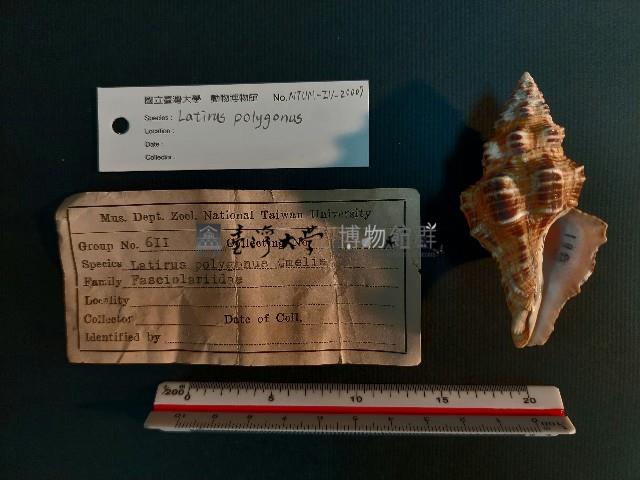 國立臺灣大學 動物博物館 No. NTUM-IV-20007
Species: Latirus polygonus
Location:
Date:
Collector:
Mus. Dept. Zool. National Taiwan University
Group No. 6II Collecting No.
Species Latirus polygonus Gmelin
Family Fasciolariidae
Locality
Collector Date of Coll.
Identified by
臺灣大學 博物館群
0 5 10 15 20